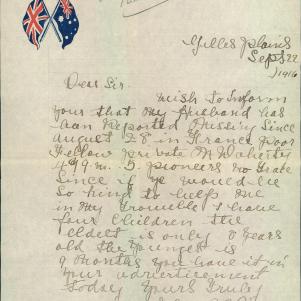 Gilles Plains
Sept 22
1916
Dear Sir
wish to Inform
your that My Husband has
bean Reported Missing Since
august 28 in France poor
Fellow private M
5 pioneers no trace
Since if ye would be
so kind to help me
in My Trouble I have
four Children the
eldest is only 8 years
old the youngest is
9 Months you have it in
your advertisement
today yours truly